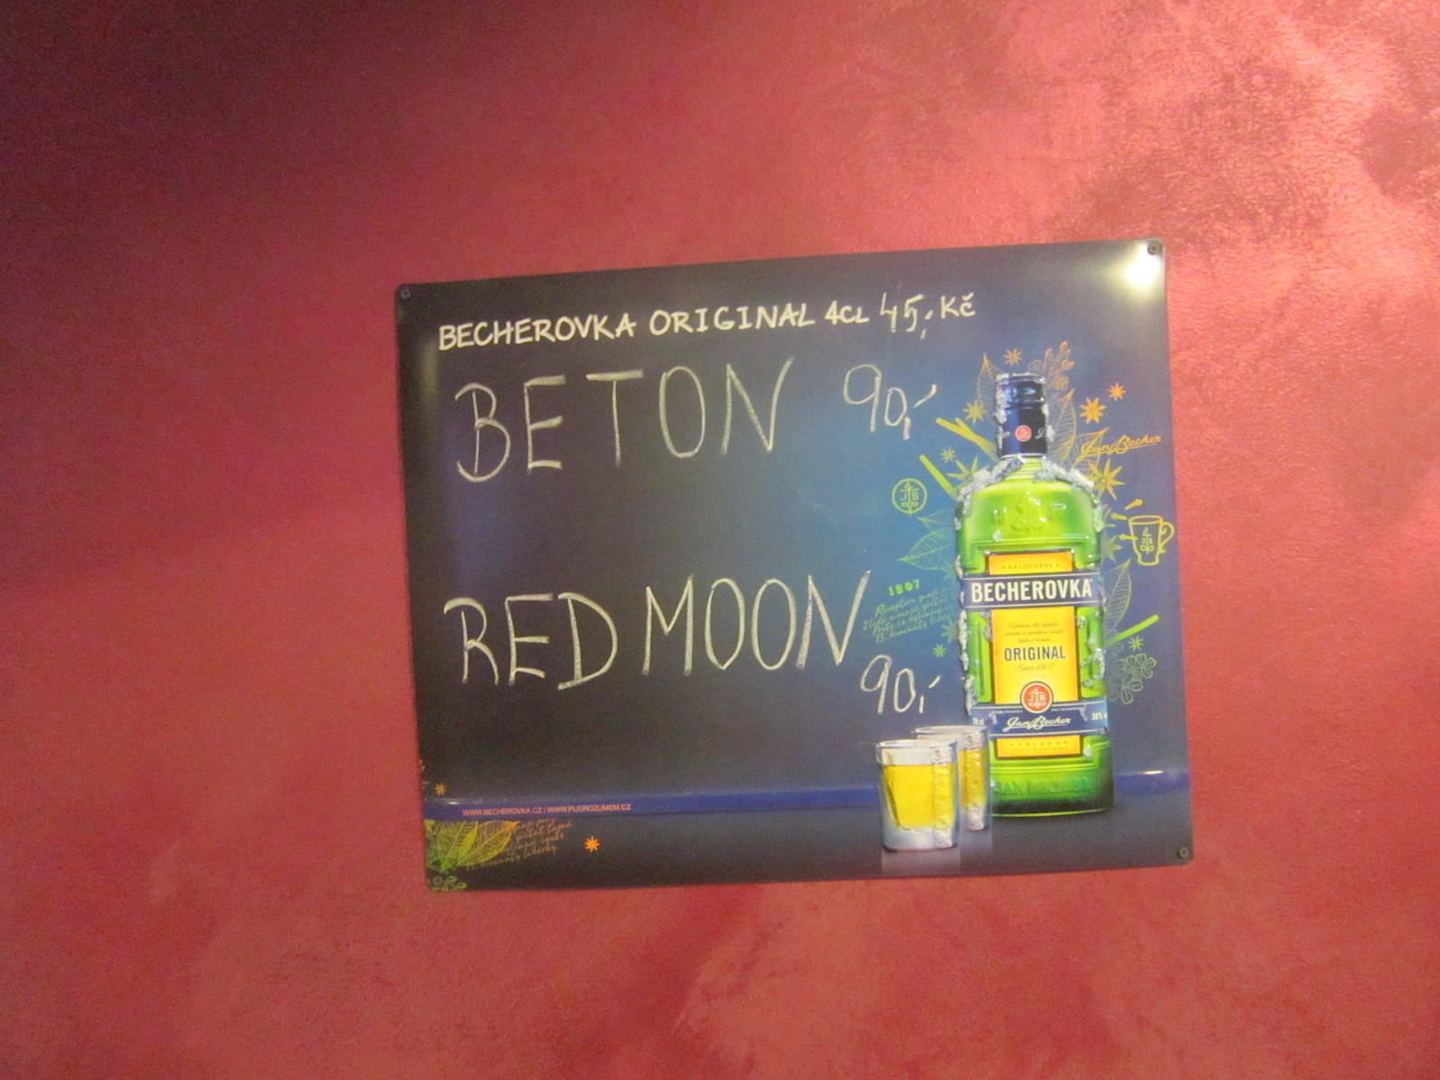 BECHEROVKA ORIGINAL 4CL 45,- Kč
BETON 90,-
RED MOON
90,-
Jan Becher
JB
1807
BECHEROVKA
ORIGINAL
JB
Jan Becher
WWW.BECHEROVKA.CZ | WWW.PIJSROZUMEM.CZ